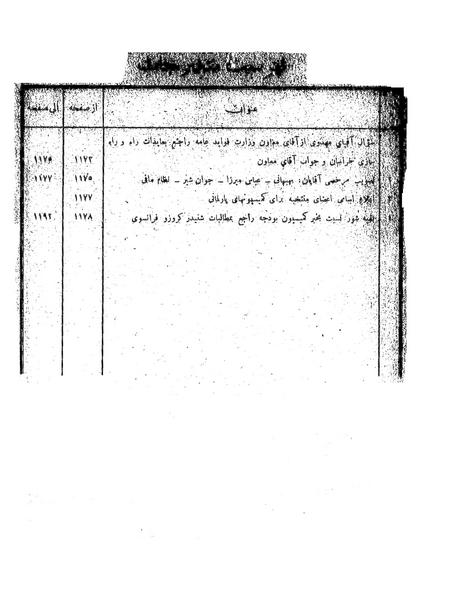 فهرست مندرجات
عنوان از صفحه الی صفحه
سؤال آقای مهدوی از آقای معاون وزارت فواید عامه راجع بعایدات راه و راه
سازی خراسان و جواب آقای معاون ۱۱۷۲ ۱۱۷۶
تصویب مرخصی آقایان: بهبهانی _ عباس میرزا _ جوان شیر _ نظام مافی ۱۱۷۵ ۱۱۷۷
اسامی اعضای منتخبه برای کمیسیونهای پارلمانی ۱۱۷۷
شور نسبت بخبر کمیسیون بودجه راجع بمطالبات شنیدر کروزو فرانسوی ۱۱۷۸ ۱۱۹۲